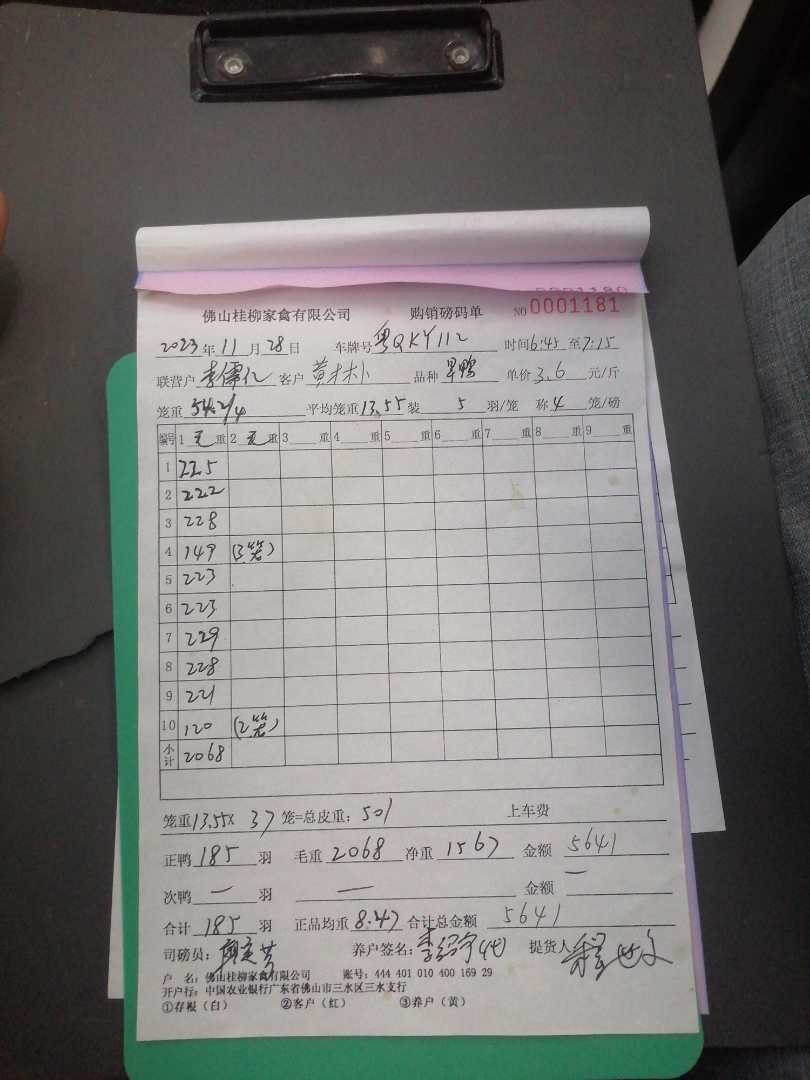 佛山桂柳家禽有限公司 购销磅码单 NO 0001181
2023年11月28日 车牌号 粤QKY112 时间6:45至7:15
联营户 李儒亿 客户 黄木朴 品种 旱鸭 单价3.6元/斤
笼重 54.2/4 平均笼重13.55装 5 羽/笼 称4笼/磅
编号 1毛重 2毛重 3重 4重 5重 6重 7重 8重 9重
1 225
2 222
3 228
4 149 (3笼)
5 223
6 223
7 229
8 228
9 221
10 120 (2笼)
小计 2068
笼重13.55x 37笼=总皮重:501 上车费
正鸭 185 羽 毛重 2068 净重 1567 金额 5641
次鸭 — 羽 — 金额 —
合计 185 羽 正品均重 8.47 合计总金额 5641
司磅员: 养户签名: 提货人
户 名: 佛山桂柳家禽有限公司 账号: 444 401 010 400 169 29
开户行: 中国农业银行广东省佛山市三水区三水支行
①存根(白) ②客户(红) ③养户(黄)